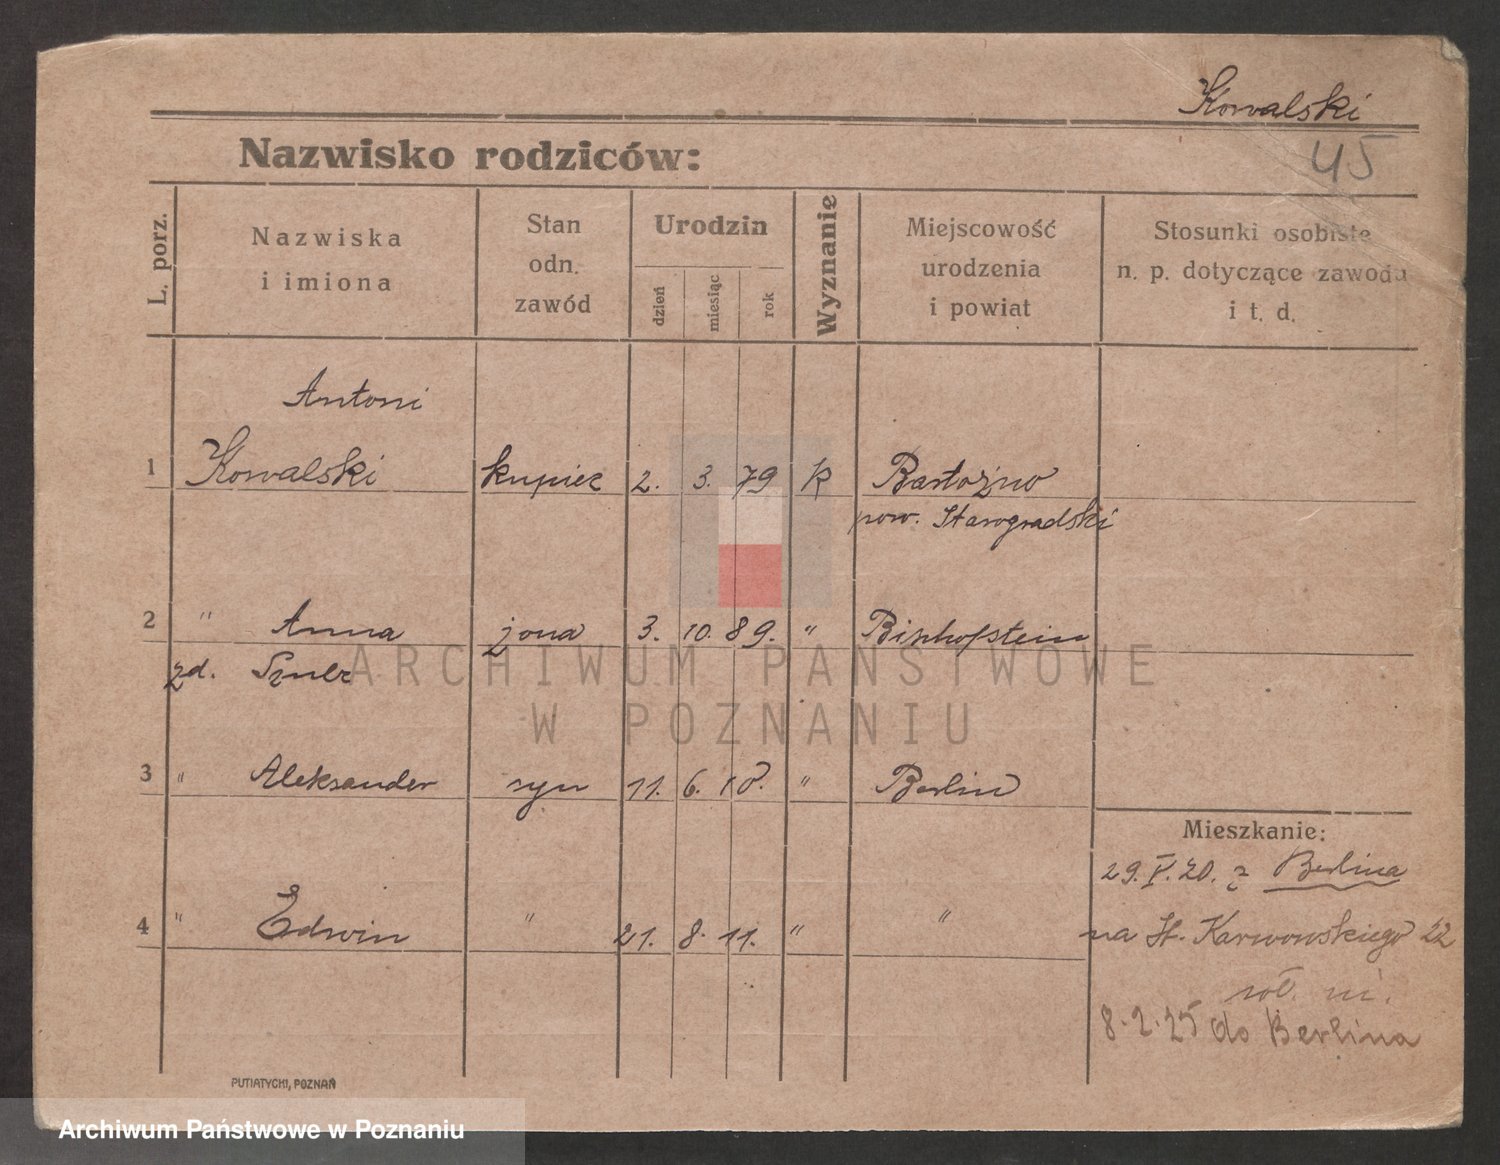 Kowalski
45
Nazwisko rodziców:
L. porz.
Nazwiska
i imiona
Stan
odn.
zawód
Urodzin
dzień
miesiąc
rok
Wyznanie
Miejscowość
urodzenia
i powiat
Stosunki osobiste
n. p. dotyczące zawodu
i t. d.
Antoni
1 Kowalski kupiec 2. 3. 79 k
pow. Starogradski
2 " Anna żona 3. 10. 89. " Bischofstein
zd. Szulc
3 " Aleksander syn 11. 6. 10. " Berlin
Mieszkanie:
29. V. 20. z Berlina
4 " Edwin " 21. 8. 11. " "
na St. Karwowskiego 22
8.2.25 do Berlina
PUTIATYCKI, POZNAŃ
ARCHIWUM PAŃSTWOWE
W POZNANIU
Archiwum Państwowe w Poznaniu